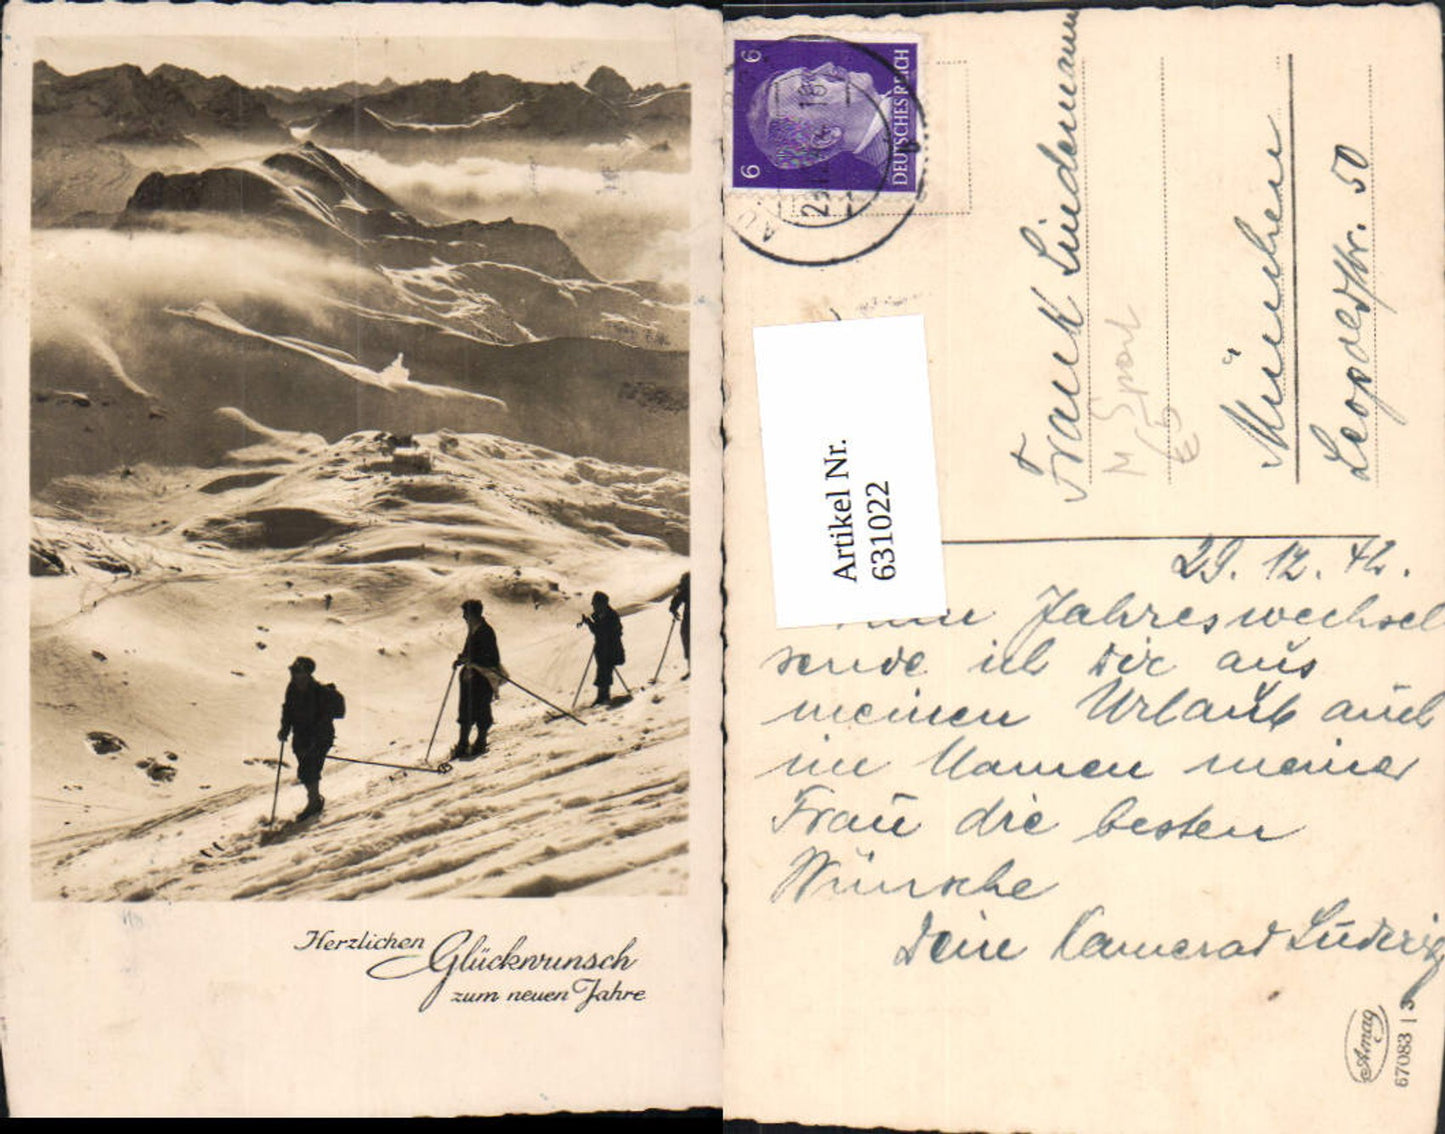 Herzlichen
Glückwunsch
zum neuen Jahre
6 6
DEUTSCHES REICH
Frank Lindemann
München
Leopoldstr. 50
M Sport
Artikel Nr.
631022
29. 12. 42.
Jahreswechsel
sende ich Dir aus
meinen Urlaub auch
im Namen meiner
Frau die besten
Wünsche
Dein Kamerad Ludwig
Amag
67083 | 3